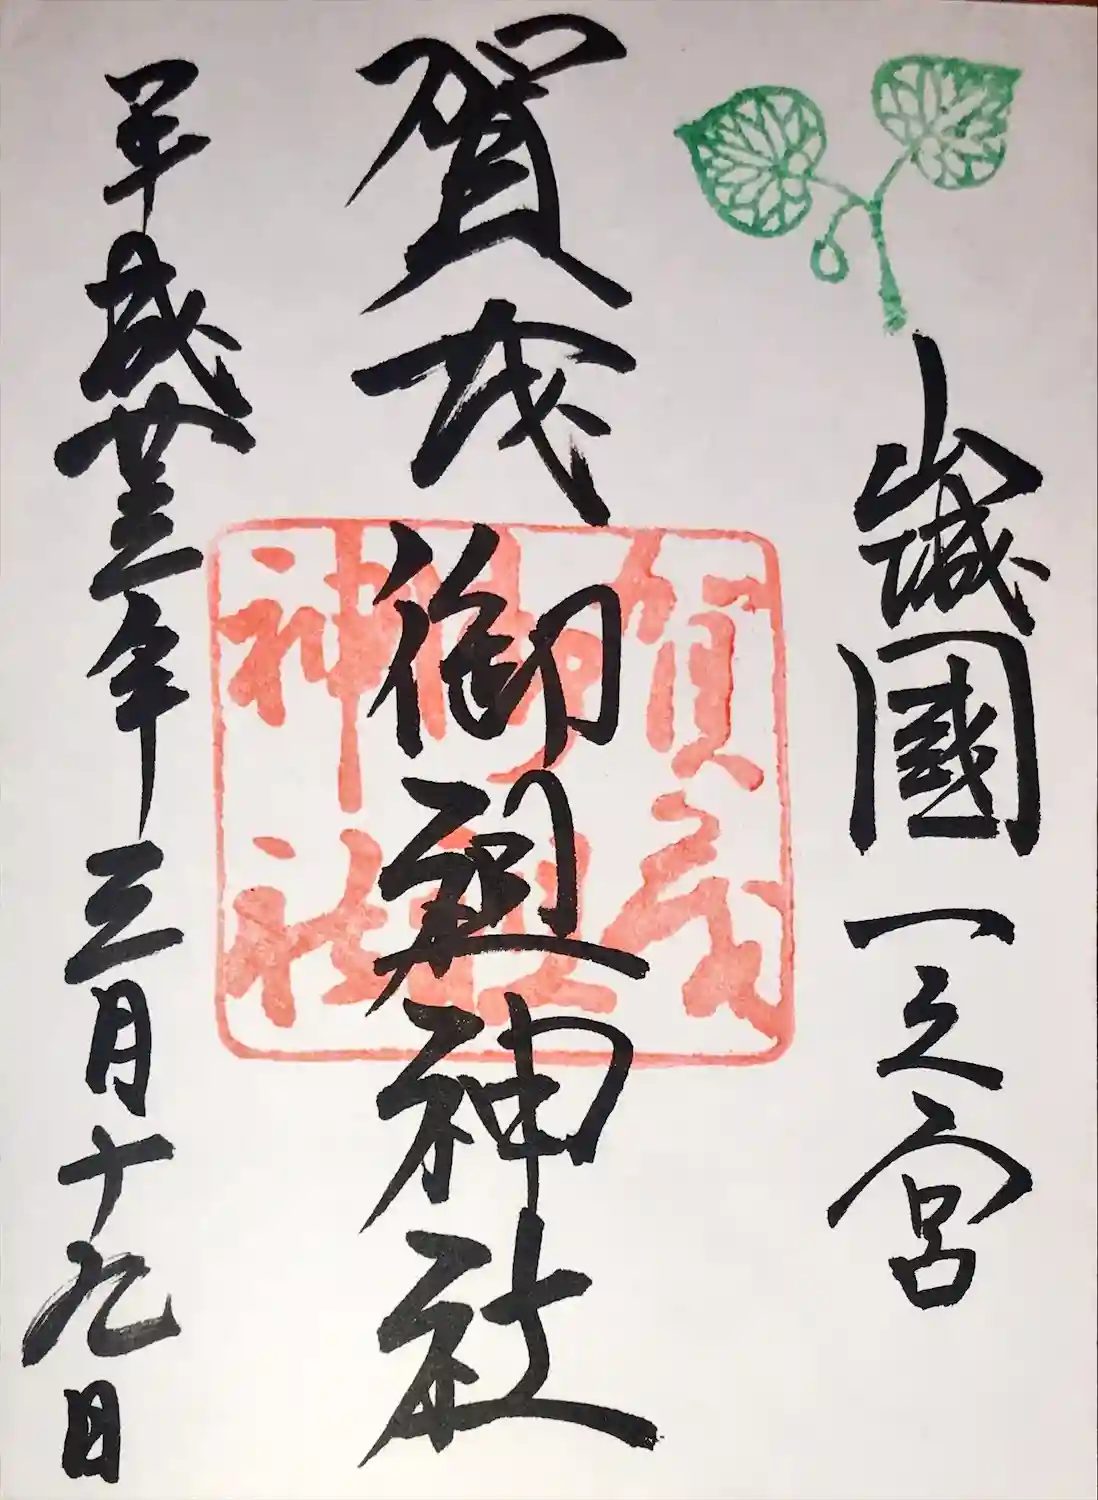 山城國一之宮
賀茂御祖神社
平成廿三年三月十九日
賀茂
御祖
神社